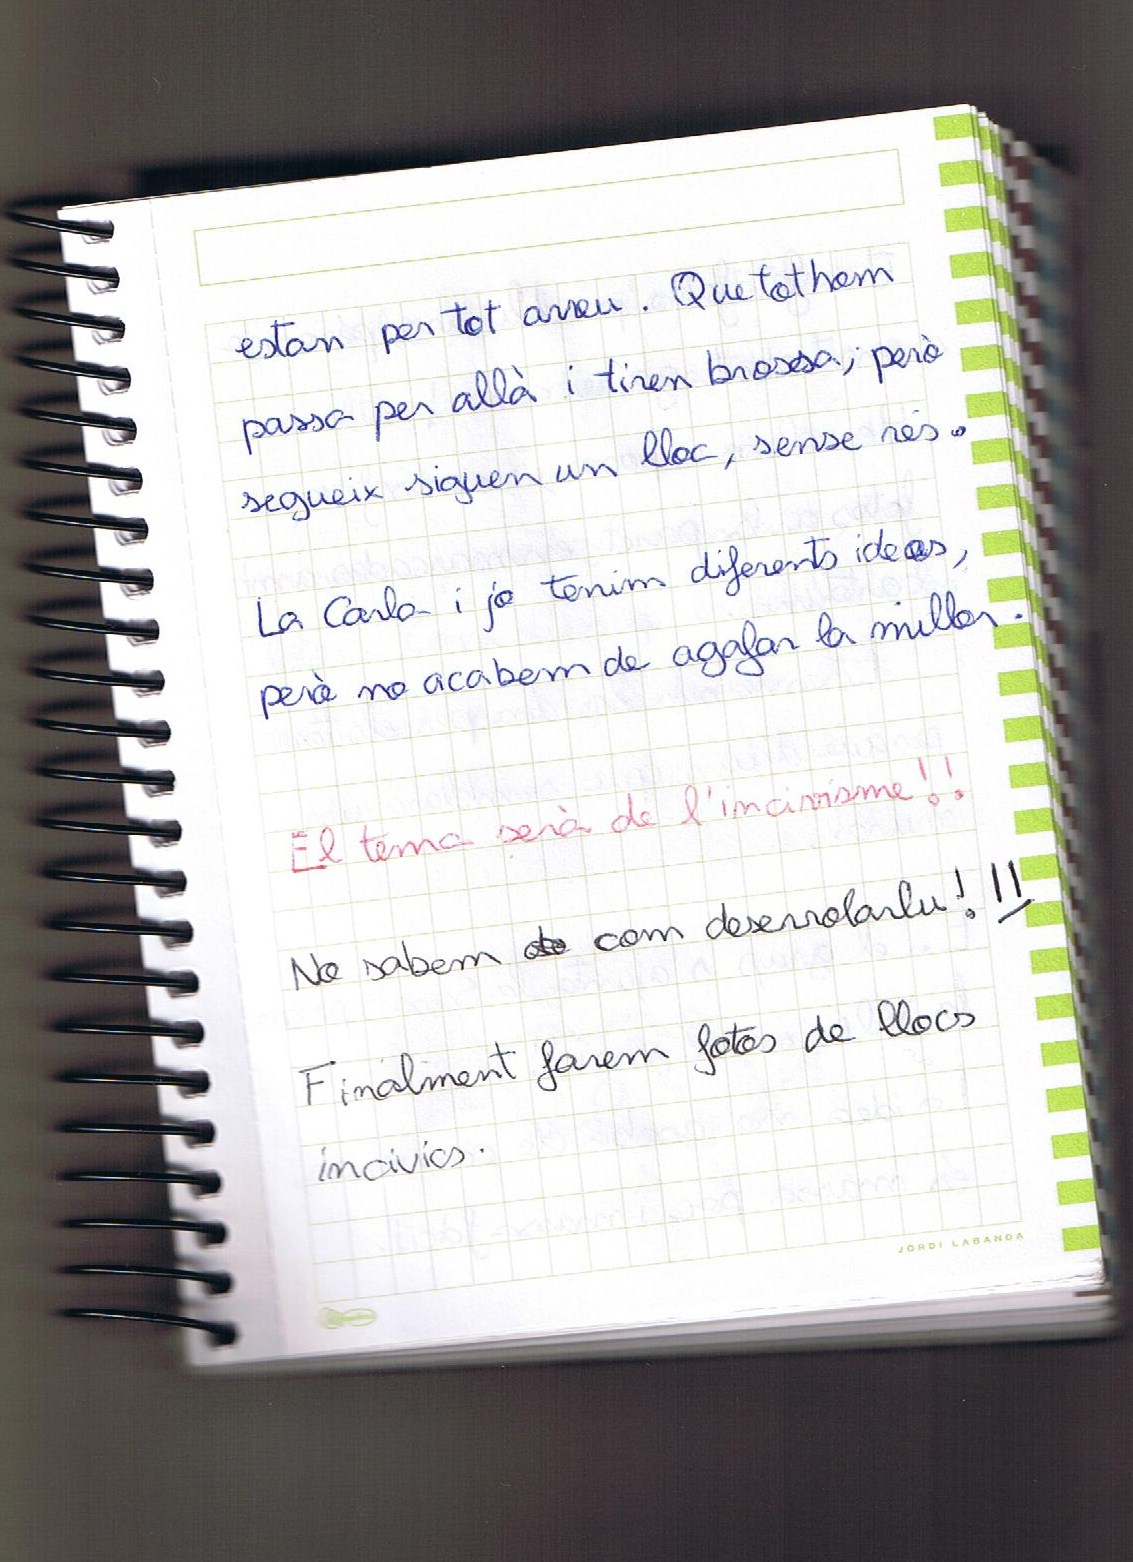 estan per tot arreu. Que tothom
passa per allà i tiren brossa, però
segueix siguen un lloc, sense rés.
La Carla i jo tenim diferents idees,
però no acabem de agafar la millor.
El tema serà de l'incivisme!!
No sabem com desenrolarlu!!!
Finalment farem fotos de llocs
incivics.
JORDI LABANDA